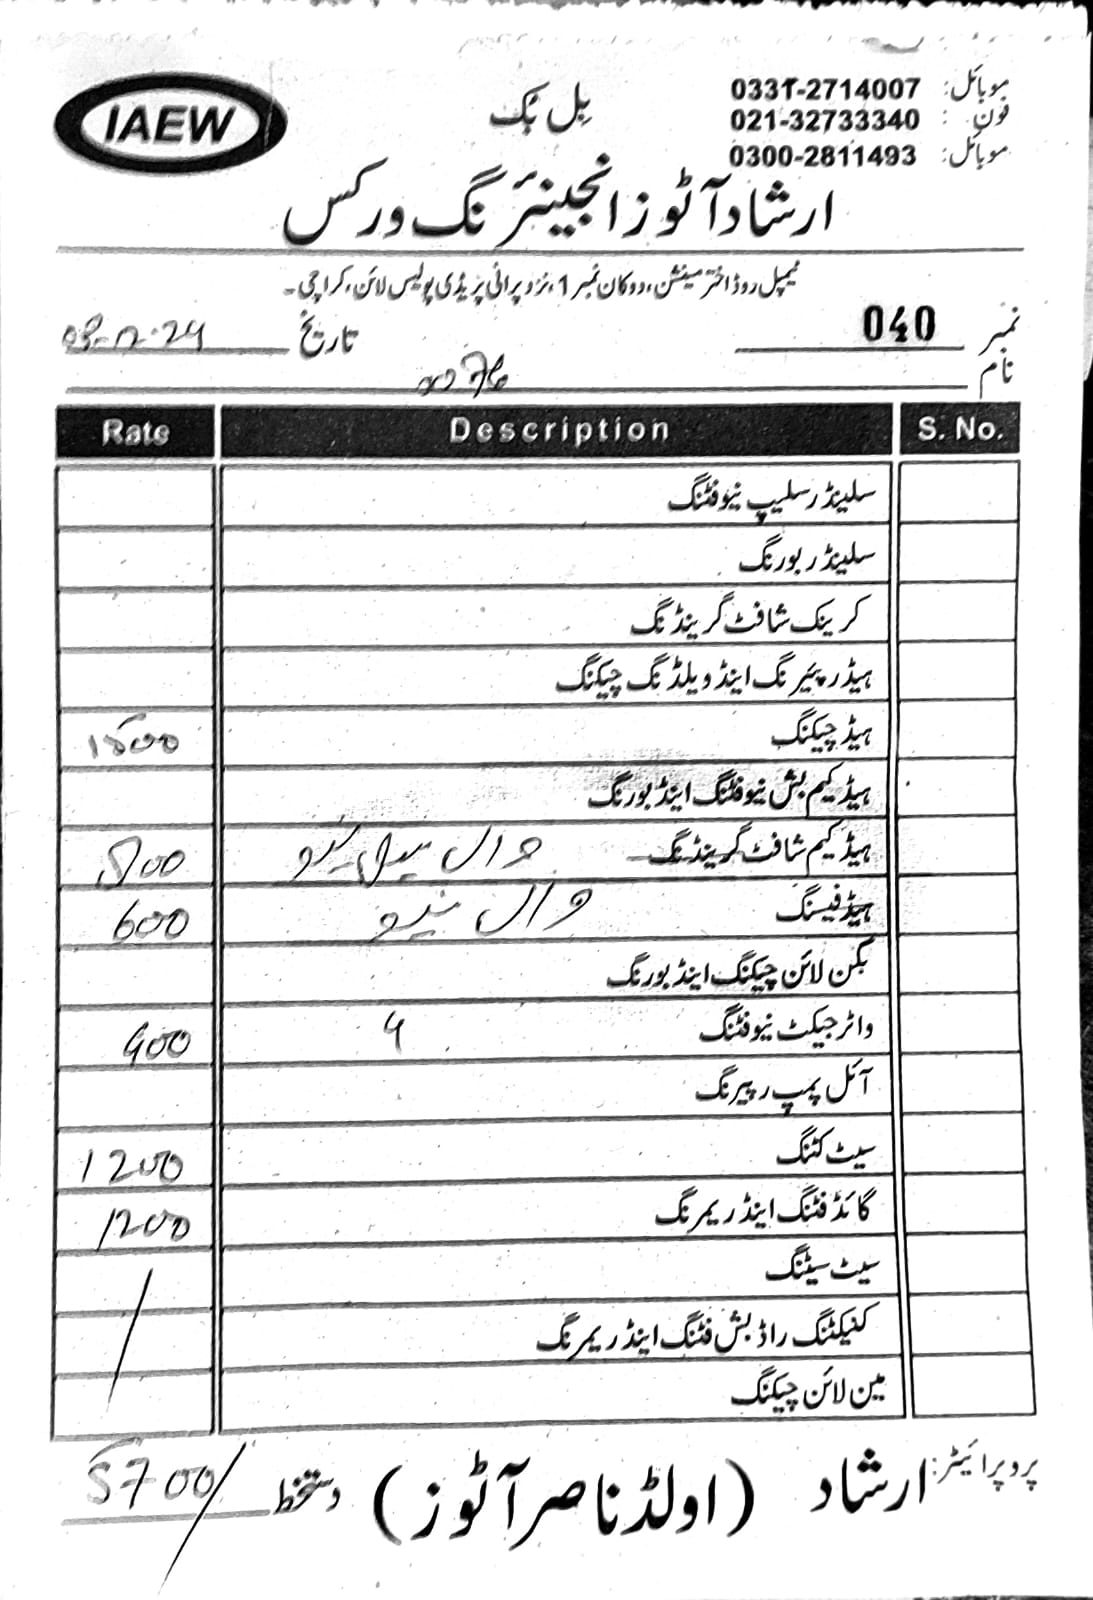 IAEW
بل بک
موبائل: 0331-2714007
فون: 021-32733340
موبائل: 0300-2811493
ارشاد آٹوز انجینئرنگ ورکس
ٹیمپل روڈ اختر مینشن، دوکان نمبر 1، نزد پرانی پریڈی پولیس لائن، کراچی۔
نمبر 040 تاریخ
نام
S. No. Description Rate
سلینڈر سلیپ نیو فٹنگ
سلینڈر بورنگ
کرینک شافٹ گرینڈنگ
ہیڈ رپئیرنگ اینڈ ویلڈنگ چیکنگ
ہیڈ چیکنگ 1500
ہیڈ کیم بش نیو فٹنگ اینڈ بورنگ
ہیڈ کیم شافٹ گرینڈنگ وال سیل نیو 800
ہیڈ فیسنگ وال نیو 600
بگن لائن چیکنگ اینڈ بورنگ
واٹر جیکٹ نیو فٹنگ 4 400
آئل پمپ رپیرنگ
سیٹ کٹنگ 1200
گائڈ فٹنگ اینڈ ریمرنگ 1200
سیٹ سیٹنگ
کنیکٹنگ راڈ بش فٹنگ اینڈ ریمرنگ
مین لائن چیکنگ
پروپرائیٹر: ارشاد (اولڈ ناصر آٹوز) دستخط 5700/